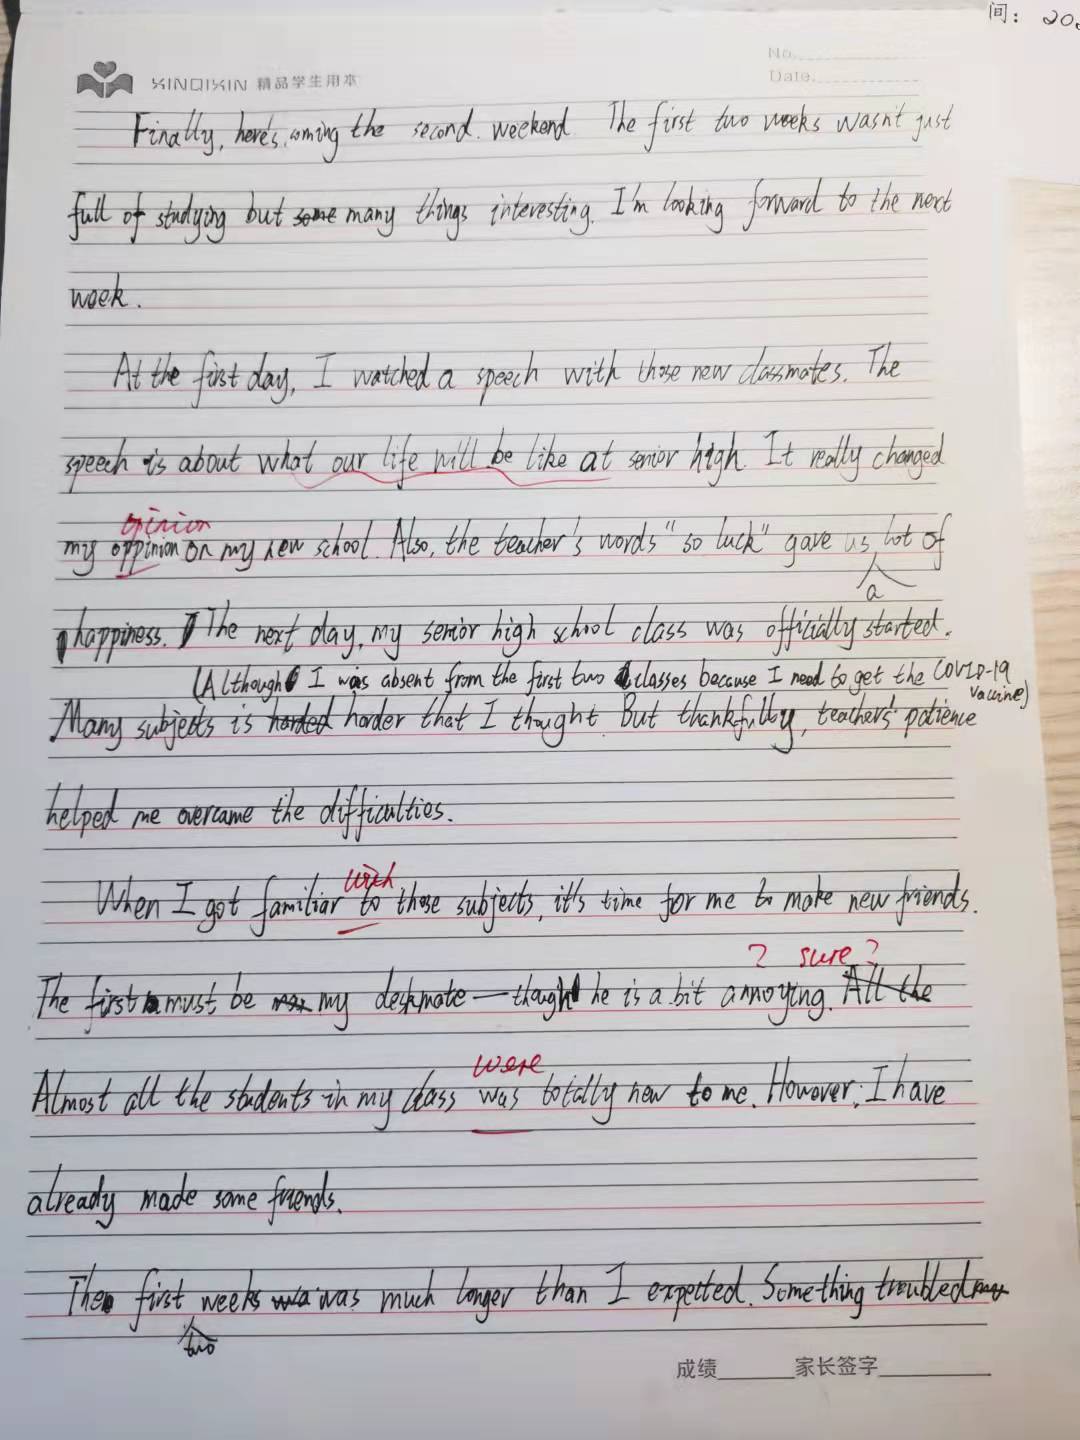 间: 202
No.
Date.
XINQIXIN 精品学生用本
Finally, here's coming the second weekend. The first two weeks wasn't just
full of studying but some many things interesting. I'm looking forward to the next
week.
At the first day, I watched a speech with those new classmates. The
speech is about what our life will be like at senior high. It really changed
opinion
my oppinion on my new school. Also, the teacher's words "so luck" gave us lot of
a
happiness. The next day, my senior high school class was officially started.
(Although I was absent from the first two classes because I need to get the COVID-19
vaccine)
Many subjects is harded harder that I thought. But thankfully, teachers' patience
helped me overcame the difficulties.
with
When I got familiar to those subjects, it's time for me to make new friends.
? sure?
The first must be my deskmate — though he is a bit annoying. All the
were
Almost all the students in my class was totally new to me. However, I have
already made some friends.
The first weeks wa was much longer than I expected. Something troubled my
two
成绩 家长签字